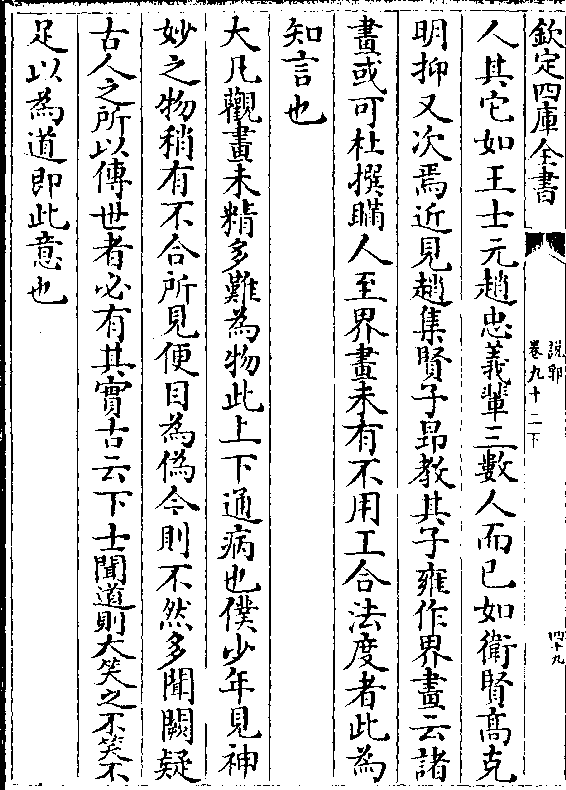 欽定四庫全書
說郛
卷九十二下
四十九
人其它如王士元趙忠義輩三數人而已如衛賢髙克
明抑又次焉近見趙集賢子昂教其子雍作界畫云諸
畫或可杜撰瞞人至界畫未有不用工合法度者此為
知言也
大凡觀畫未精多難為物此上下通病也僕少年見神
妙之物稍有不合所見便目為偽今則不然多聞闕疑
古人之所以傳世者必有其實古云下士聞道則大笑之不笑不
足以為道即此意也